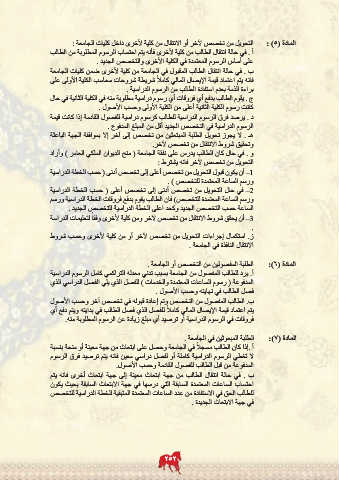 المادة (٥) : التحويل من تخصص لآخر أو الانتقال من كلية لأخرى داخل كليات الجامعة :
أ . في حالة انتقال الطالب من كلية لأخرى فإنه يتم احتساب الرسوم المطلوبة من الطالب
على أساس الرسوم المعتمدة في الكلية الأخرى والتخصص الجديد .
ب . في حالة انتقال الطالب المقبول في الجامعة من كلية لأخرى ضمن كليات الجامعة
فإنه يتم اعتماد قيمة الإيصال المالي كاملاً شريطة شروحات محاسب الكلية الأولى على
براءة الذمة بعدم استفادة الطالب من الرسوم الدراسية .
ج . يقوم الطالب بدفع أي فروقات أي رسوم دراسية مطلوبة منه في الكلية الثانية في حال
كانت رسوم الكلية الثانية أعلى من الكلية الأولى وحسب الأصول .
د . يرصد فرق الرسوم الدراسية للطالب كرسوم دراسية للفصول القادمة إذا كانت قيمة
الرسوم الدراسية في التخصص الجديد أقل من المبلغ المدفوع .
هـ . لا يجوز تحويل الطلبة المبتعثين من تخصص إلى آخر إلا بموافقة الجهة الباعثة
وتحقيق شروط الانتقال من تخصص لآخر .
و . في حال كان الطالب يدرس على نفقة الجامعة ( منح الديوان الملكي العامر ) وأراد
التحويل من تخصص لآخر فإنه يشترط :
1- أن يكون قبول التحويل من تخصص أعلى إلى تخصص أدنى ( حسب الخطة الدراسية
ورسم الساعة المعتمدة للتخصص ) .
2- في حال التحويل من تخصص أدنى إلى تخصص أعلى ( حسب الخطة الدراسية
ورسم الساعة المعتمدة للتخصص) فإن الطالب يقوم بدفع فروقات الخطة الدراسية ورسم
الساعة حسب التخصص الجديد وكحد أعلى الخطة الدراسية للتخصص الجديد .
3- أن يحقق شروط الانتقال من تخصص لآخر ومن كلية لأخرى وفقاً لتعليمات الدراسة
.
ز. استكمال إجراءات التحويل من تخصص لآخر أو من كلية لأخرى وحسب شروط
الانتقال النافذة في الجامعة .
المادة (٦): الطلبة المفصولين من التخصص أو الجامعة .
أ. يرد للطالب المفصول من الجامعة بسبب تدني معدله التراكمي كامل الرسوم الدراسية
المدفوعة ( رسوم الساعات المعتمدة والخدمات ) للفصل الذي يلي الفصل الدراسي الذي
فصل الطالب في نهايته وحسب الأصول .
ب. الطالب المفصول من التخصص وتم إعادة قبوله في تخصص آخر وحسب الأصول
يتم اعتماد قيمة الإيصال المالي كاملاً للفصل الذي فصل الطالب في بدايته ويتم دفع أي
فروقات في الرسوم الدراسية أو ترصيد أي مبلغ زيادة عن الرسوم المطلوبة منه.
المادة (٧): الطلبة المبعوثين في الجامعة .
أ . إذا كان الطالب مسجلاً في الجامعة وحصل على ابتعاث من جهة معينة أو منحة بنسبة
لا تغطي الرسوم الدراسية كاملة أو لفصل دراسي معين فإنه يتم ترصيد فرق الرسوم
المدفوعة من قبل الطالب للفصول القادمة وحسب الأصول.
ب . في حالة انتقال الطالب من جهة ابتعاث معينة إلى جهة ابتعاث أخرى فإنه يتم
احتساب الساعات المعتمدة السابقة التي درسها في جهة الابتعاث السابقة بحيث يكون
للطالب الحق في الاستفادة من عدد الساعات المعتمدة المتبقية للخطة الدراسية للتخصص
في جهة الابتعاث الجديدة .
٢٥٢